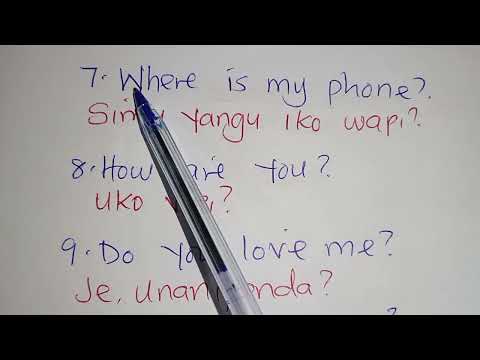 7. Where is my phone?.
yangu iko wapi?
8. How are you?
uko
9. Do you love me?
Je,
?